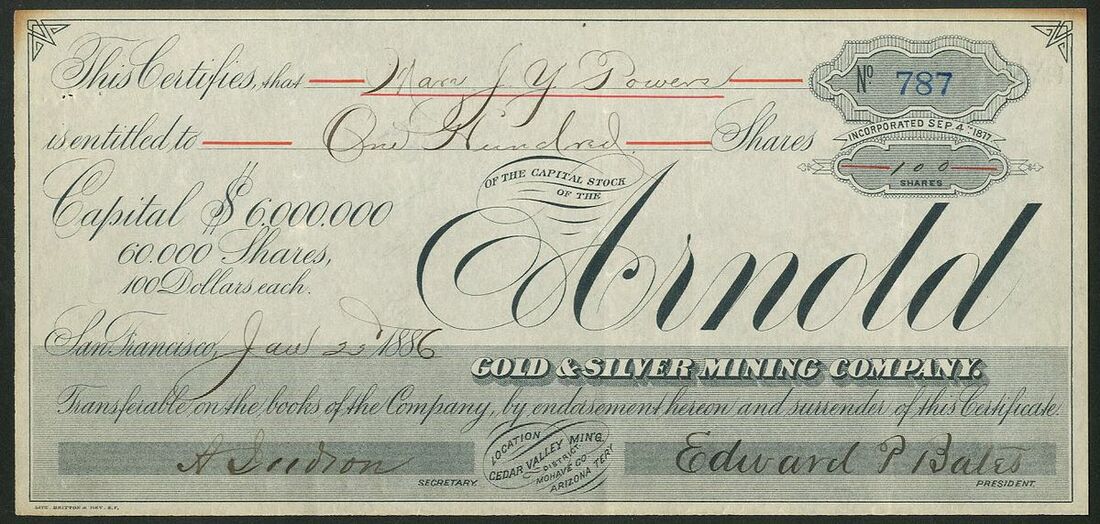 This Certifies, that Mary J Y Powers
No 787
is entitled to One Hundred Shares
INCORPORATED SEP. 4TH 1877.
100
SHARES
OF THE CAPITAL STOCK
OF THE
Capital $6.000.000
60.000 Shares,
100 Dollars each.
Arnold
San Francisco, Jan 22d 1886
GOLD & SILVER MINING COMPANY.
Transferable on the books of the Company, by endorsement hereon and surrender of this Certificate.
A Judson
SECRETARY.
LOCATION
CEDAR VALLEY MIN'G.
DISTRICT
MOHAVE CO
ARIZONA TERY
Edward P Bates
PRESIDENT.
LITH. BRITTON & REY. S.F.